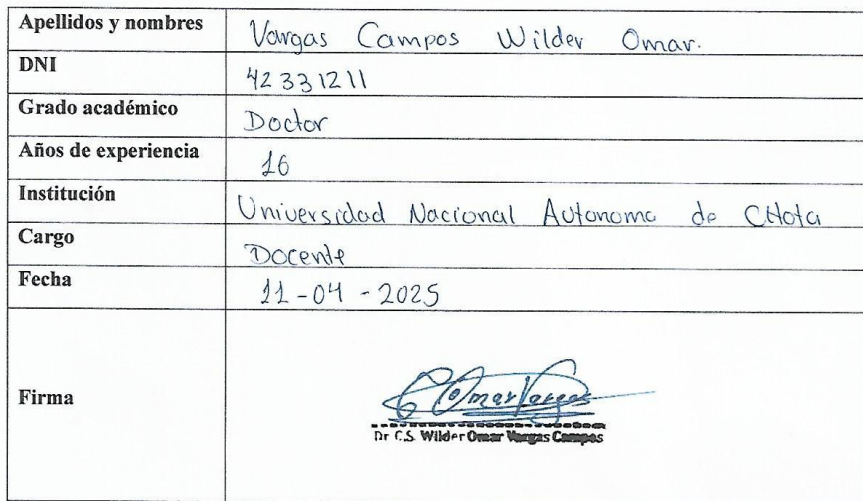 Apellidos y nombres Vargas Campos Wilder Omar.
DNI 42331211
Grado académico Doctor
Años de experiencia 16
Institución Universidad Nacional Autonoma de CHota
Cargo Docente
Fecha 11-04-2025
Firma
Omar Vargas
Dr. C.S. Wilder Omar Vargas Campos